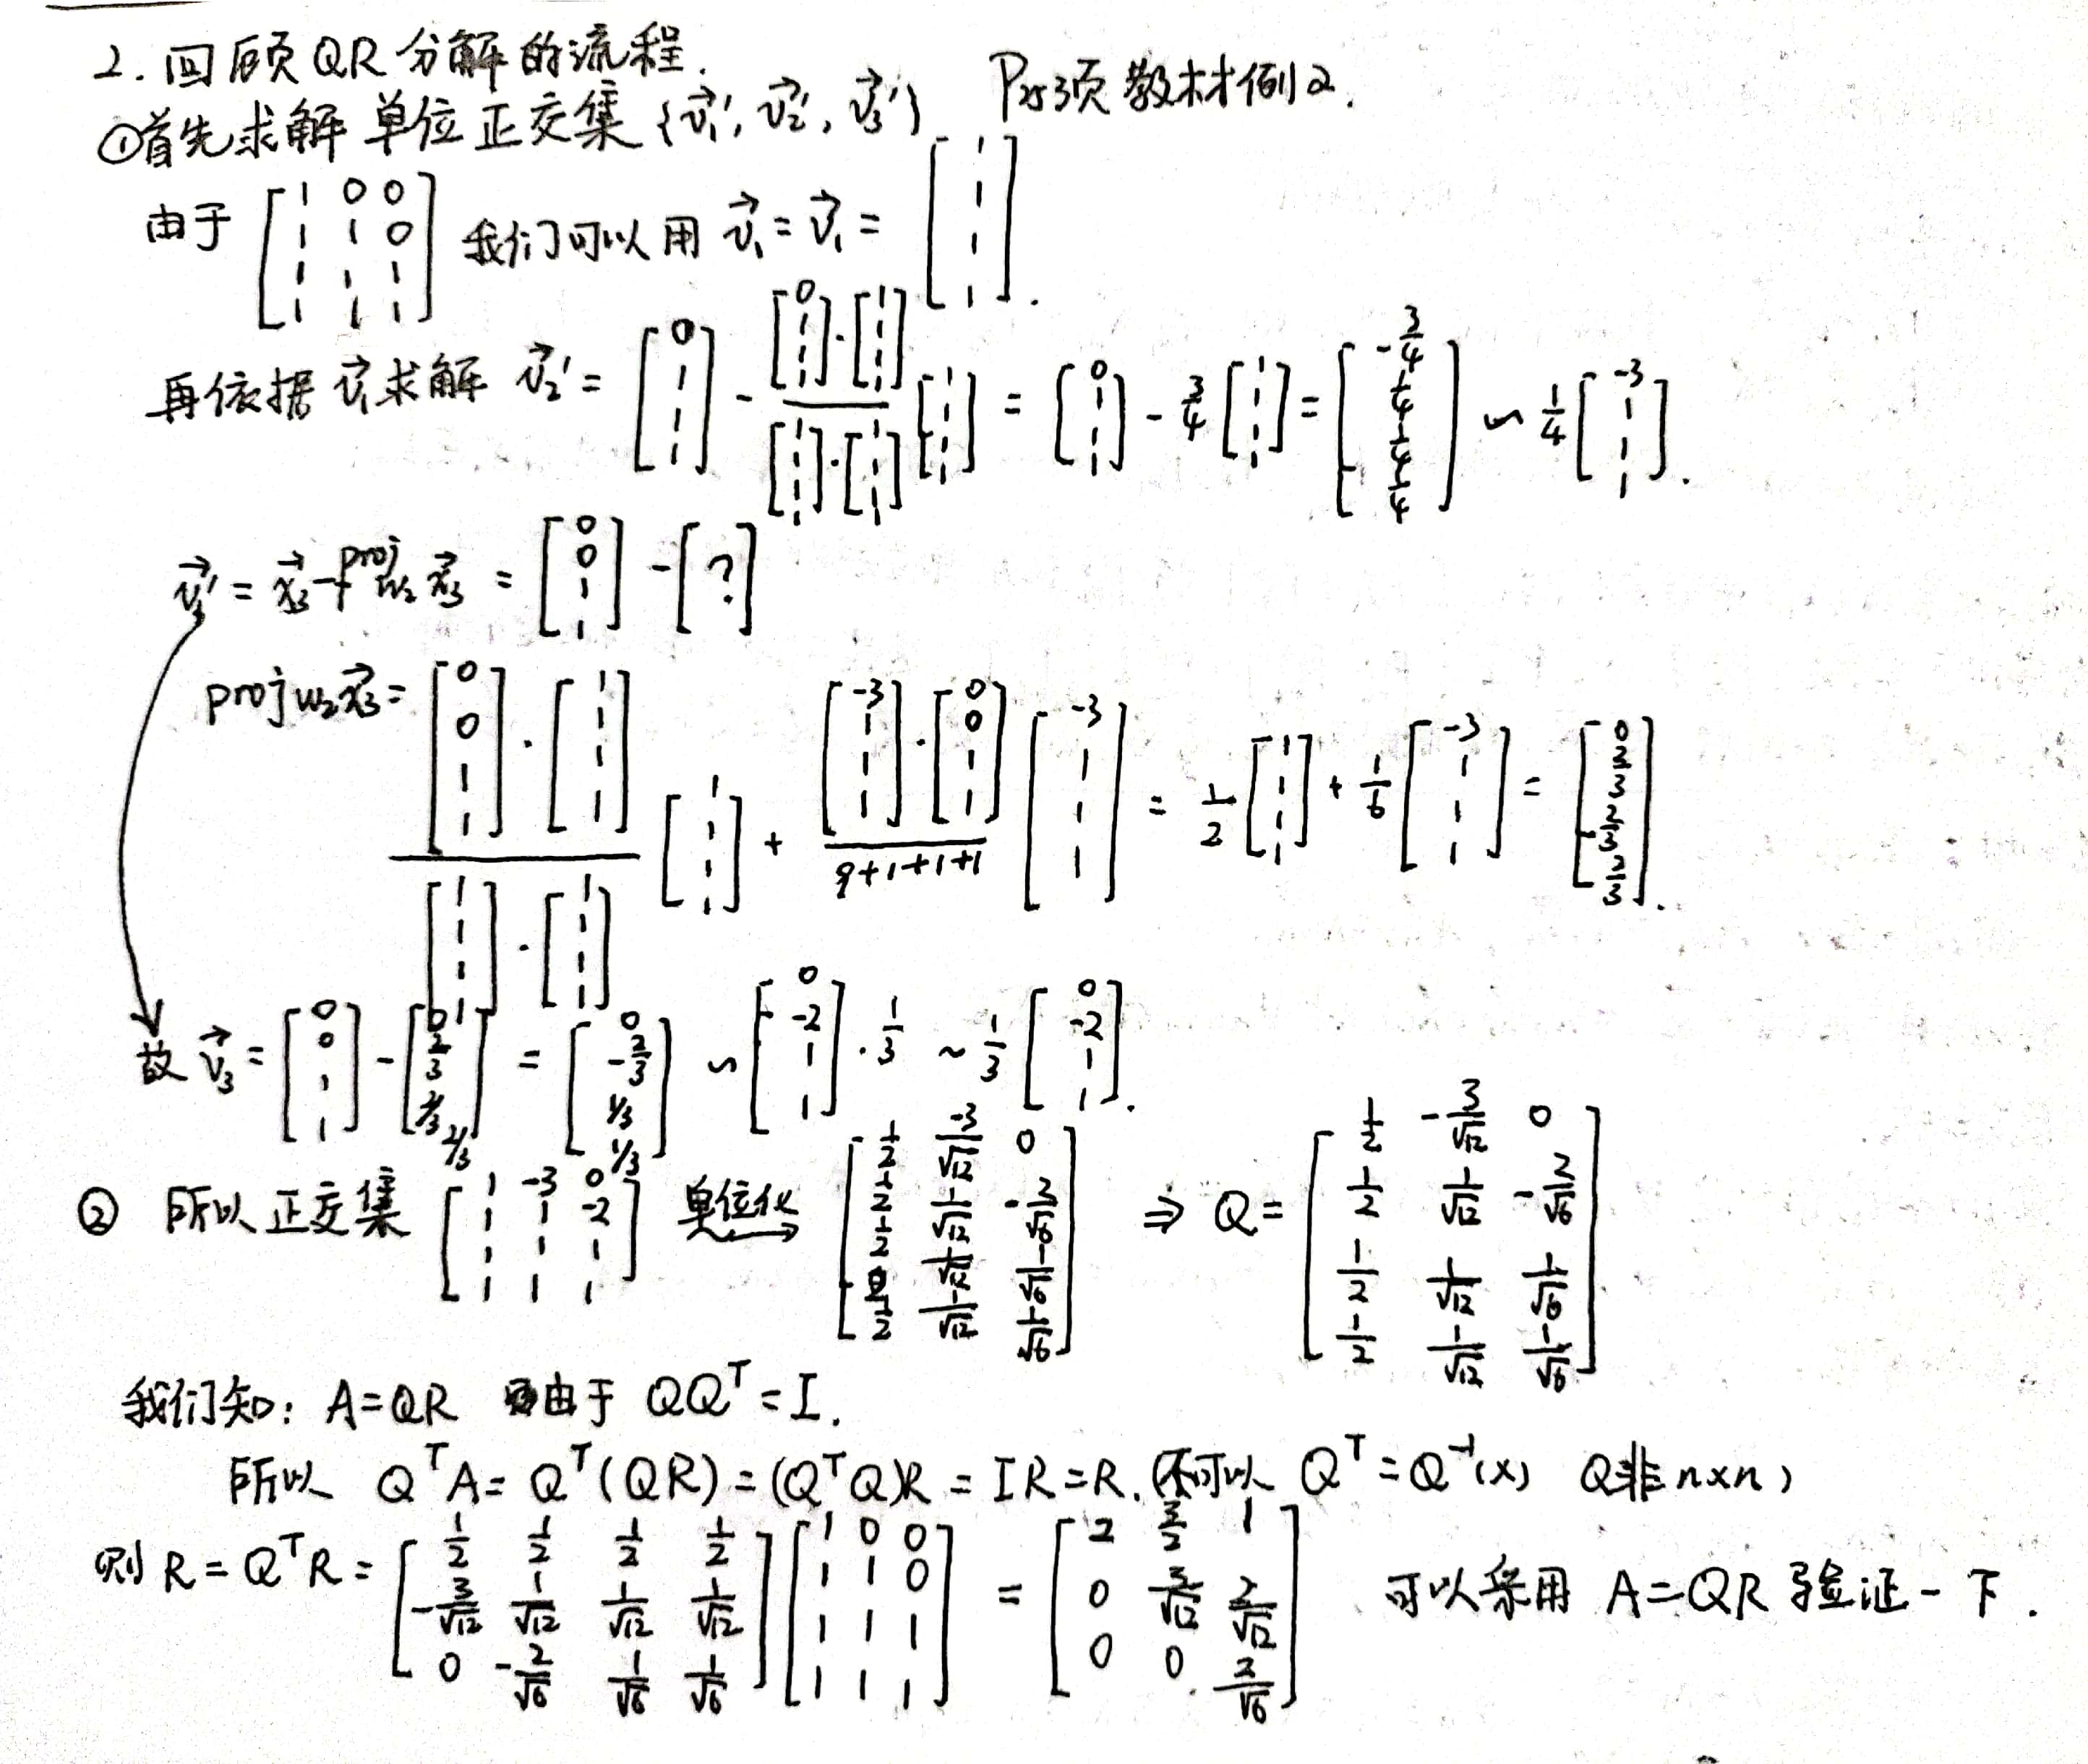 2. 回顾QR分解的流程.
①首先求解单位正交集 {v⃗₁', v⃗₂', v⃗₃'} P253页 教材例2.
由于 [1 0 0; 1 1 0; 1 1 1; 1 1 1] 我们可以用 v⃗₁ = v⃗₁ = [1; 1; 1; 1].
再依据 v⃗₁ 求解 v⃗₂' = [0; 1; 1; 1] - ([0; 1; 1; 1]·[1; 1; 1; 1])/([1; 1; 1; 1]·[1; 1; 1; 1]) [1; 1; 1; 1] = [0; 1; 1; 1] - 3/4 [1; 1; 1; 1] = [-3/4; 1/4; 1/4; 1/4] ∽ 1/4 [-3; 1; 1; 1].
v⃗₃' = x⃗₃ - proj w₂ x⃗₃ = [0; 0; 1; 1] - [?]
proj w₂ x⃗₃ = ([0; 0; 1; 1]·[1; 1; 1; 1])/([1; 1; 1; 1]·[1; 1; 1; 1]) [1; 1; 1; 1] + ([-3; 1; 1; 1]·[0; 0; 1; 1])/(9+1+1+1) [-3; 1; 1; 1] = 1/2 [1; 1; 1; 1] + 1/6 [-3; 1; 1; 1] = [0; 2/3; 2/3; 2/3].
故 v⃗₃ = [0; 0; 1; 1] - [0; 2/3; 2/3; 2/3] = [0; -2/3; 1/3; 1/3] ∽ [0; -2; 1; 1]·1/3 ~ 1/3 [0; -2; 1; 1].
② 所以正交集 [1 -3 0; 1 1 -2; 1 1 1; 1 1 1] 单位化→ [1/2 -3/√12 0; 1/2 1/√12 -2/√6; 1/2 1/√12 1/√6; 1/2 1/√12 1/√6] ⇒ Q = [1/2 -3/√12 0; 1/2 1/√12 -2/√6; 1/2 1/√12 1/√6; 1/2 1/√12 1/√6]
我们知: A=QR 由于 QQᵀ=I.
所以 QᵀA = Qᵀ(QR) = (QᵀQ)R = IR = R. (不可以 Qᵀ=Q⁻¹(×) Q非n×n)
则 R = QᵀR = [1/2 1/2 1/2 1/2; -3/√12 1/√12 1/√12 1/√12; 0 -2/√6 1/√6 1/√6] [1 0 0; 1 1 0; 1 1 1; 1 1 1] = [2 3/2 1; 0 3/√12 2/√12; 0 0 2/√6] 可以采用 A=QR 验证一下.